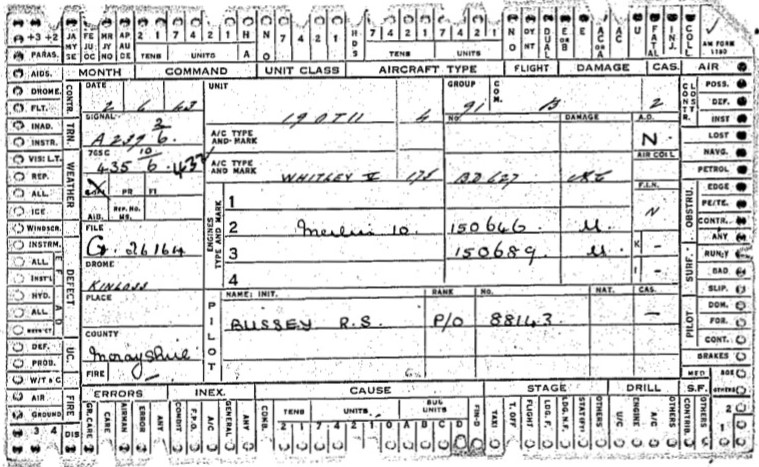 +3 +2 JA MY SE FE JU OC MR JY NO AP AU DE 2 1 7 4 2 1 H A N O 7 4 2 1 HDS 7 4 2 1 7 4 2 1 NO DUAL E OR B E AC OR A AC U FATAL INJ. COLL AM FORM 1180
PARAS. TENS UNITS TENS UNITS
AIDS. MONTH COMMAND UNIT CLASS AIRCRAFT TYPE FLIGHT DAMAGE CAS. AIR
DROME. CONTR. DATE UNIT GROUP COM. CONTR. LOST POSS.
FLT. 2 6 43 19 OTU 4 91 B 2 DEF.
INAD. TRN. SIGNAL A/C TYPE AND MARK NO. DAMAGE A.D. INST
INSTR. A239 2/6 N LOST
VISI L.T. WEATHER 765C A/C TYPE AND MARK AIR COLL NAVG.
REP. 435 10/6 WHITLEY V 178 BD627 PETROL
ALL PR FI F.I.N. OBSTRU. EDGE
ICE AID. REP. NO. ENGINES TYPE AND MARK 1 PE/TE.
WINDSCR. FILE 2 Merlin 10. 150646 U. N CONTR.
INSTRM. G. 26164 3 150689 U. K - ANY
ALL DEFECT DROME 4 I - SURF. RUN:Y
INST'L KINLOSS BAD
HYD. PLACE PILOT NAME: INIT. RANK NO. NAT. CAS. SLIP.
ALL BUSSEY R.S. P/O 88143 - PILOT DOM.
COUNTY FOR.
DEF. UC. Morayshire CONT.
PROB. FIRE - BRAKES
W/T & C MED BOS
AIR FIRE ERRORS INEX. CAUSE STAGE DRILL S.F. OTHERS
GROUND GR. CARE CARE AIRMAN ERROR ANY CONDIT F.P.O. A/C GENERAL ANY COND. TENS UNITS UNITS TAXI T. OFF FLIGHT LDG. F. LDG. N.F. OTHERS U/C ENGINE A/C OTHERS CONTRIB OTHERS 2
3 4 DIS 2 1 7 4 2 1 0 A B C D 1